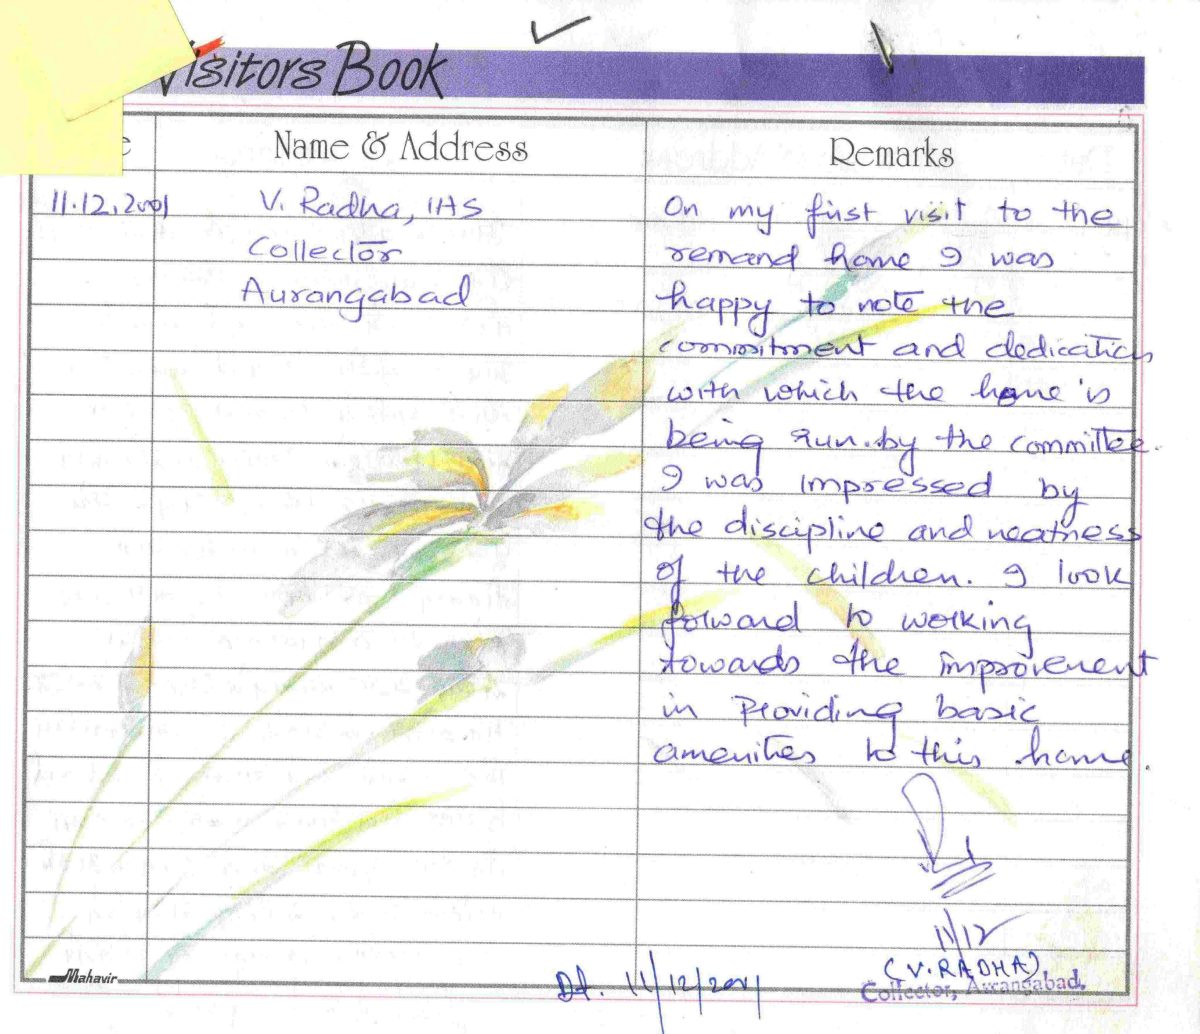 Visitors Book
Name & Address
Remarks
11.12.2001
V. Radha, IAS
Collector
Aurangabad
On my first visit to the
remand home I was
happy to note the
commitment and dedication
with which the home is
being run by the committee.
I was impressed by
the discipline and neatness
of the children. I look
forward to working
towards the improvement
in Providing basic
amenities to this home.
11/12
(V. RADHA)
Collector, Aurangabad.
Dt. 11/12/2001
Mahavir